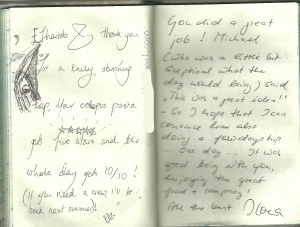 & thank you
For a truly stunning
trip. Your octopus pasta
gets five stars and the
whole day gets 10/10!
(If you need a crew, I'll be
back next summer!)
You did a great
job! Michael
(who was a little bit
sceptical what the
day would bring) said
„This was a great idea!"
- So I hope that I can
convince him also
doing a few days trip
one day... It was
great being with you,
enjoying the great
food & jumping!
All the best